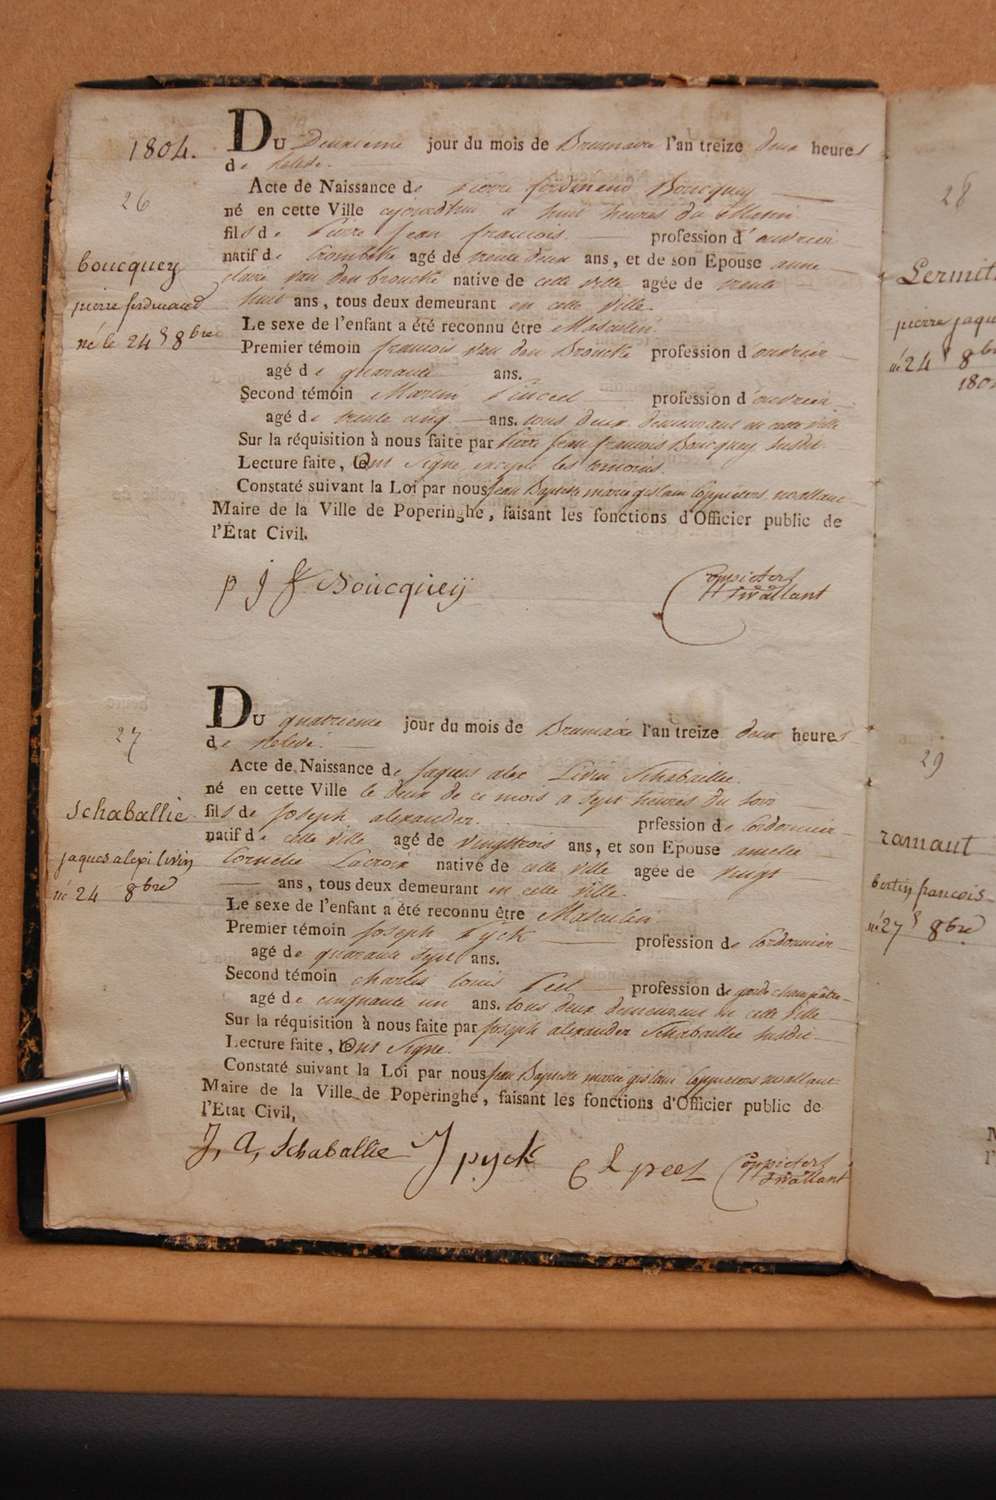 1804.
26
boucquey
pierre ferdinand
né le 24 8bre
Du Deuxieme jour du mois de Brumaire l'an treize deux heures
de relevé.
Acte de Naissance de pierre ferdinand Boucquey
né en cette Ville ajourdhui a huit heures du Matin
fils de Pierre Jean francois profession d'ouvrier
natif de Crombeke agé de trente deux ans, et de son Epouse anne
claire van den broucke native de cette ville agée de trente
huit ans, tous deux demeurant en cette Ville.
Le sexe de l'enfant a été reconnu être Masculin
Premier témoin francois van den Broucke profession d'ouvrier
agé de quarante ans.
Second témoin profession d'ouvrier
agé de trente cinq ans. tous deux demeurant en cette ville
Sur la réquisition à nous faite par Pierre Jean francois Boucquey susdit
Lecture faite, Ont signé excepté les temoins.
Constaté suivant la Loi par nous Jean Baptiste marie gislain Coppieters wallant
Maire de la Ville de Poperinghe, faisant les fonctions d'Officier public de
l'État Civil.
p j f Boucqueÿ
Coppieters
twallant
27
Schaballië
jaques alexi livin
né 24 8bre
Du quatrieme jour du mois de Brumaire l'an treize deux heures
de relevé.
Acte de Naissance de Jaques alex Livin Schabaillie.
né en cette Ville le deux de ce mois a sept heures du soir
fils de Joseph alexander. prfession de Cordonnier
natif de cette ville agé de vingttrois ans, et son Epouse amelie
Cornelie Lacroix native de cette ville agée de vingt
ans, tous deux demeurant en cette Ville.
Le sexe de l'enfant a été reconnu être Masculin
Premier témoin Joseph Pyck profession de Cordonnier
agé de quarante sept ans.
Second témoin charles louis Peel profession de garde champêtre
agé de cinquante un ans. tous deux demeurant en cette Ville
Sur la réquisition à nous faite par Joseph alexander Schabaillie susdit
Lecture faite, Ont signé.
Constaté suivant la Loi par nous Jean Baptiste marie gislain Coppieters wallant
Maire de la Ville de Poperinghe, faisant les fonctions d'Officier public de
l'Etat Civil,
J, A, Schaballie J pyck C L peel Coppieters
twallant
28
Lermit
pierre jaque
né 24 8br
180
29
ramaut
bertin francois
né 27 8bre